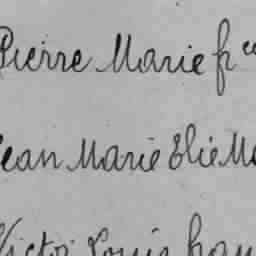 Pierre Marie fr
ean Marie Elie M
ictor Louis